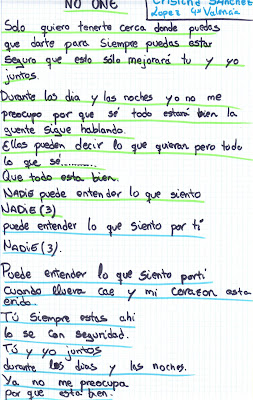 NO ONE
Cristina Sánchez
López 4º Valencia
Solo quiero tenerte cerca donde puedas
que darte para siempre puedas estar
seguro que esto sólo mejorará tu y yo
juntos.
Durante los dia y las noches yo no me
preocupo por que sé todo estará bien la
guente sigue hablando.
Ellos pueden decir lo que quieran pero todo
lo que sé...........
Que todo esta bien.
NADIE puede entender lo que siento
NADIE (3)
puede entender lo que siento por ti
NADIE (3).
Puede entender lo que siento por ti
Cuando lluera cae y mi corazon esta
erido.
Tú siempre estas ahí
lo se con seguridad.
Tú y yo juntos
durante los dias y las noches.
Ya no me preocupa
por que esta bien.